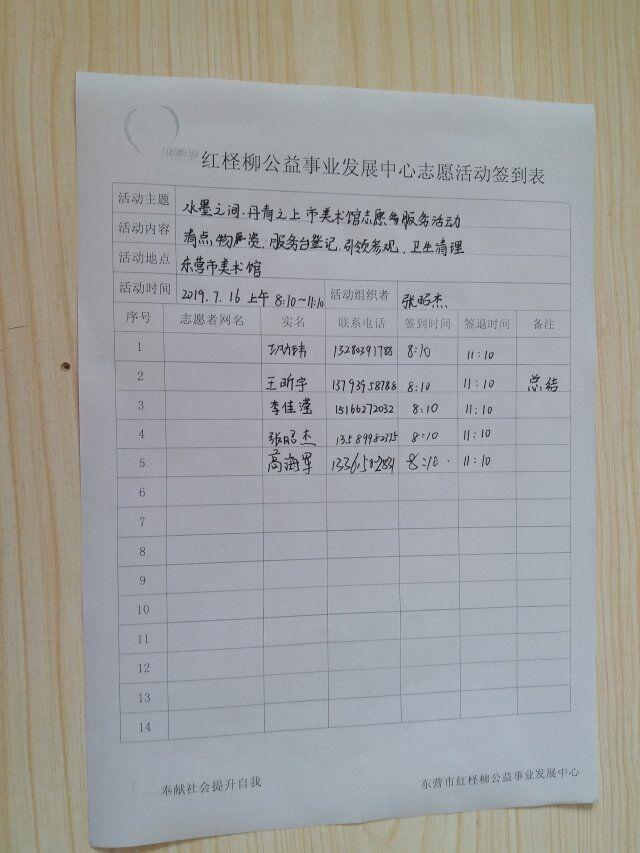 红柽柳公益事业发展中心志愿活动签到表
活动主题 水墨之间·丹青之上 市美术馆志愿者服务活动
活动内容 清点物资、服务台登记、引领参观、卫生清理
活动地点 东营市美术馆
活动时间 2019.7.16 上午 8:10~11:10 活动组织者 张昭杰
序号 志愿者网名 实名 联系电话 签到时间 签退时间 备注
1 13280391788 8:10 11:10
2 王昕宇 13793958788 8:10 11:10 总结
3 李佳滢 15166272032 8:10 11:10
4 张昭杰 13589982375 8:10 11:10
5 高海军 8:10 11:10
6
7
8
9
10
11
12
13
14
奉献社会提升自我 东营市红柽柳公益事业发展中心